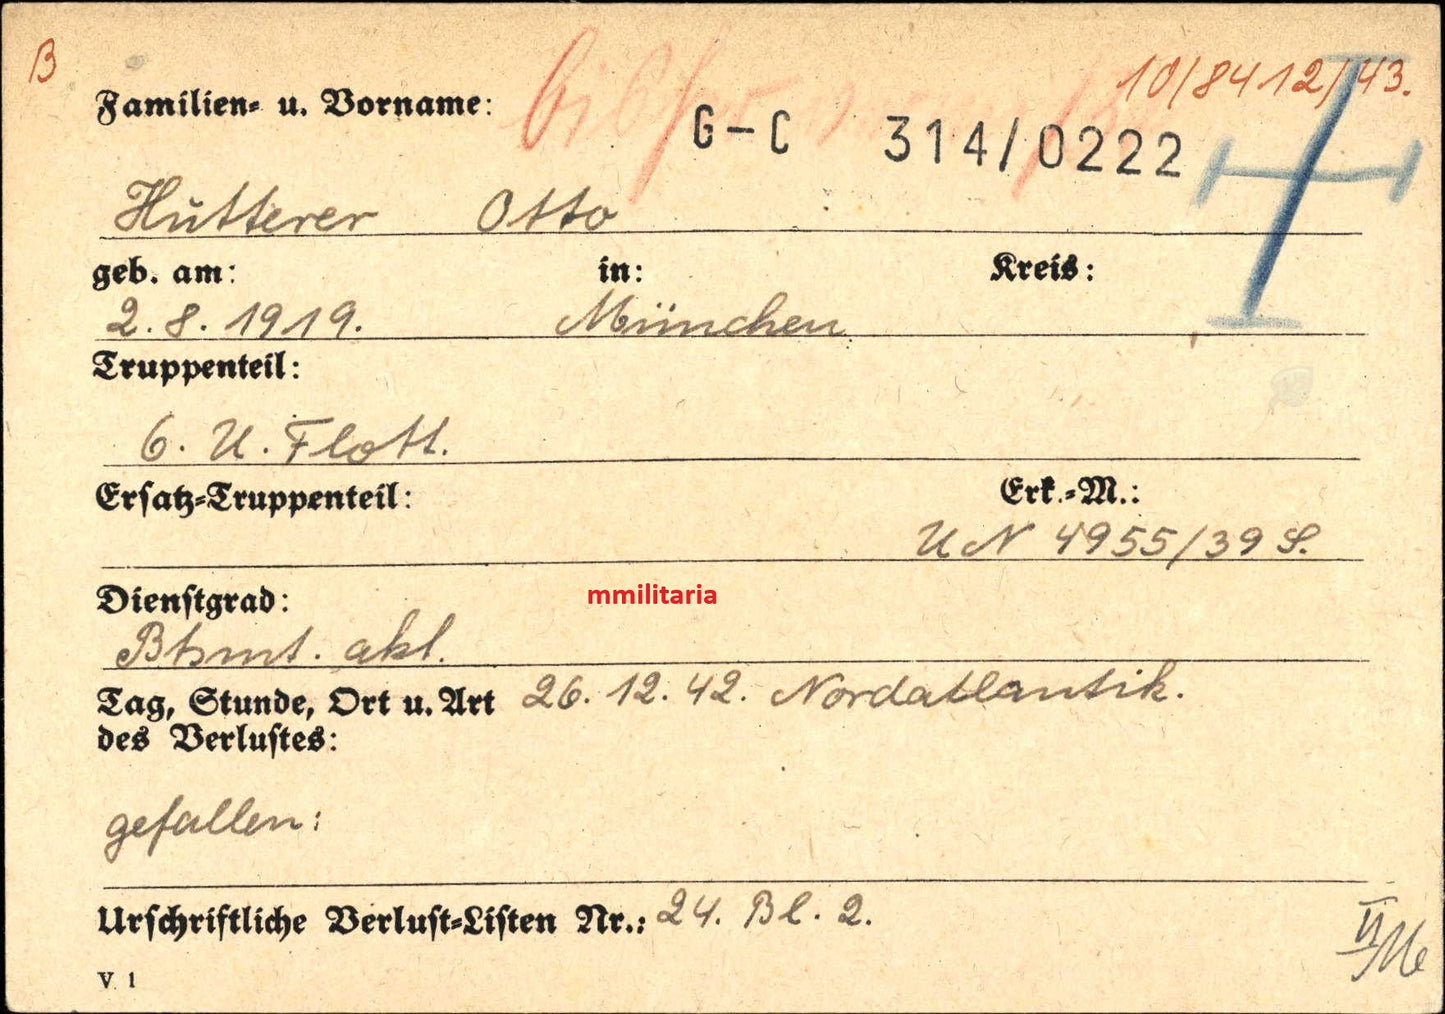 B
10/8412/43.
Familien- u. Vorname:
G-C 314/0222
Hutterer Otto
geb. am: in: Kreis:
2.8.1919. München
Truppenteil:
6. U. Flott.
Ersatz-Truppenteil: Erk.-M.:
UN 4955/39 S.
Dienstgrad:
mmilitaria
Btsmt. akl.
Tag, Stunde, Ort u. Art 26.12.42. Nordatlantik.
des Verlustes:
gefallen:
Urschriftliche Verlust-Listen Nr.: 24. Bl. 2.
V 1